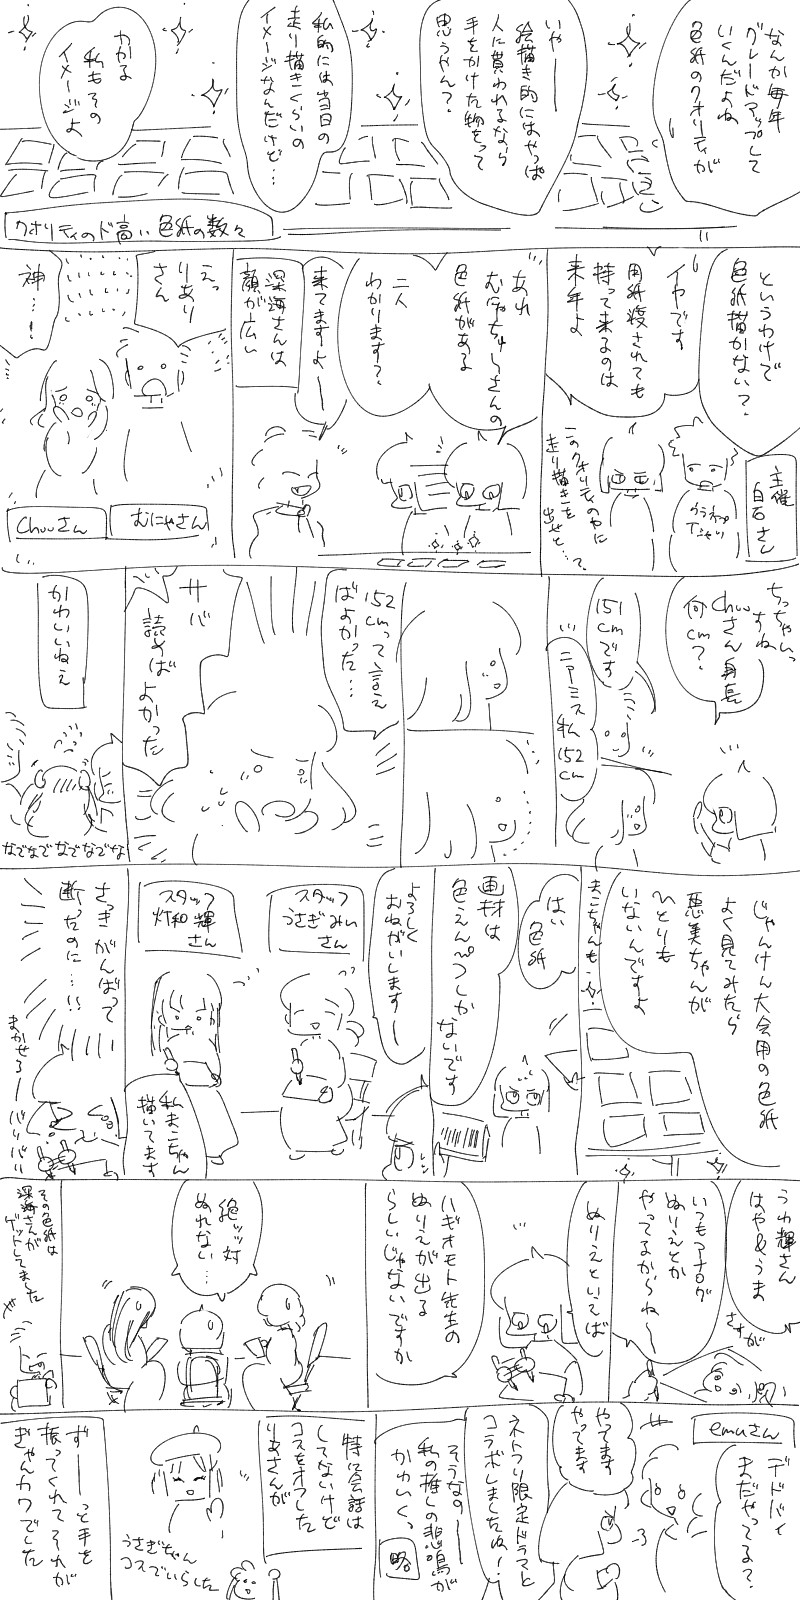 なんか毎年
グレードアップして
いくんだよね
色紙のクオリティが
いやーー
絵描き的にはやっぱ
人に貰われるなら
手をかけた物をって
思うやん?
私的には当日の
走り描きくらいの
イメージなんだけど…
わかる
私もその
イメージよ
クオリティのド高い色紙の数々
というわけで
色紙描かない?
イヤです
用紙渡されても
持って来るのは
来年よ
主催
白石さん
このクオリティの中に
走り描きを
出せと…?
あれ
むにゃちゅーさんの
色紙がある
二人
わかります?
来てますよー
深海さんは
顔が広い
えっ
りあり
さん
神…!
むにゃさん
Chuuさん
ちっちゃいっ
すね
Chuuさん身長
何cm?
151
cmです
ニアミス私152
cm
152
cmって言え
ばよかった…
サバ
読めばよかった
かわいいねぇ
なでなでなでなでなでな
じゃんけん大会用の色紙
よく見てみたら
悪美ちゃんが
ひとりも
いないんですよ
まこちゃんも
はい
色紙
画材は
色えんぴつしか
ないです
よろしく
おねがいしますー
スタッフ
うさぎみぃ
さん
スタッフ
灯和輝
さん
私まこちゃん
描いてます
さっきがんばって
断ったのに…!!
まかせろーバリバリ
うわ輝さん
はや&うま
さすが
いつもアナログ
ぬりえとか
やってるからね〜
ぬりえといえば
ハギオモト先生の
ぬりえが出る
らしいじゃないですか
絶ッッ対
ぬれない…
その色紙は
深海さんが
ゲットしてました
emuさん
デドバイ
まだやってる?
やってます
やってます
ネトフリ限定ドラマと
コラボしましたね!
そうなのーー
私の推しの悲鳴が
かわいくっ
略
特に会話は
してないけど
コスをオフした
りまさんが
うさぎちゃん
コスでいらした
ずーーっと手を
振ってくれてそれが
ぎゃんカワでした